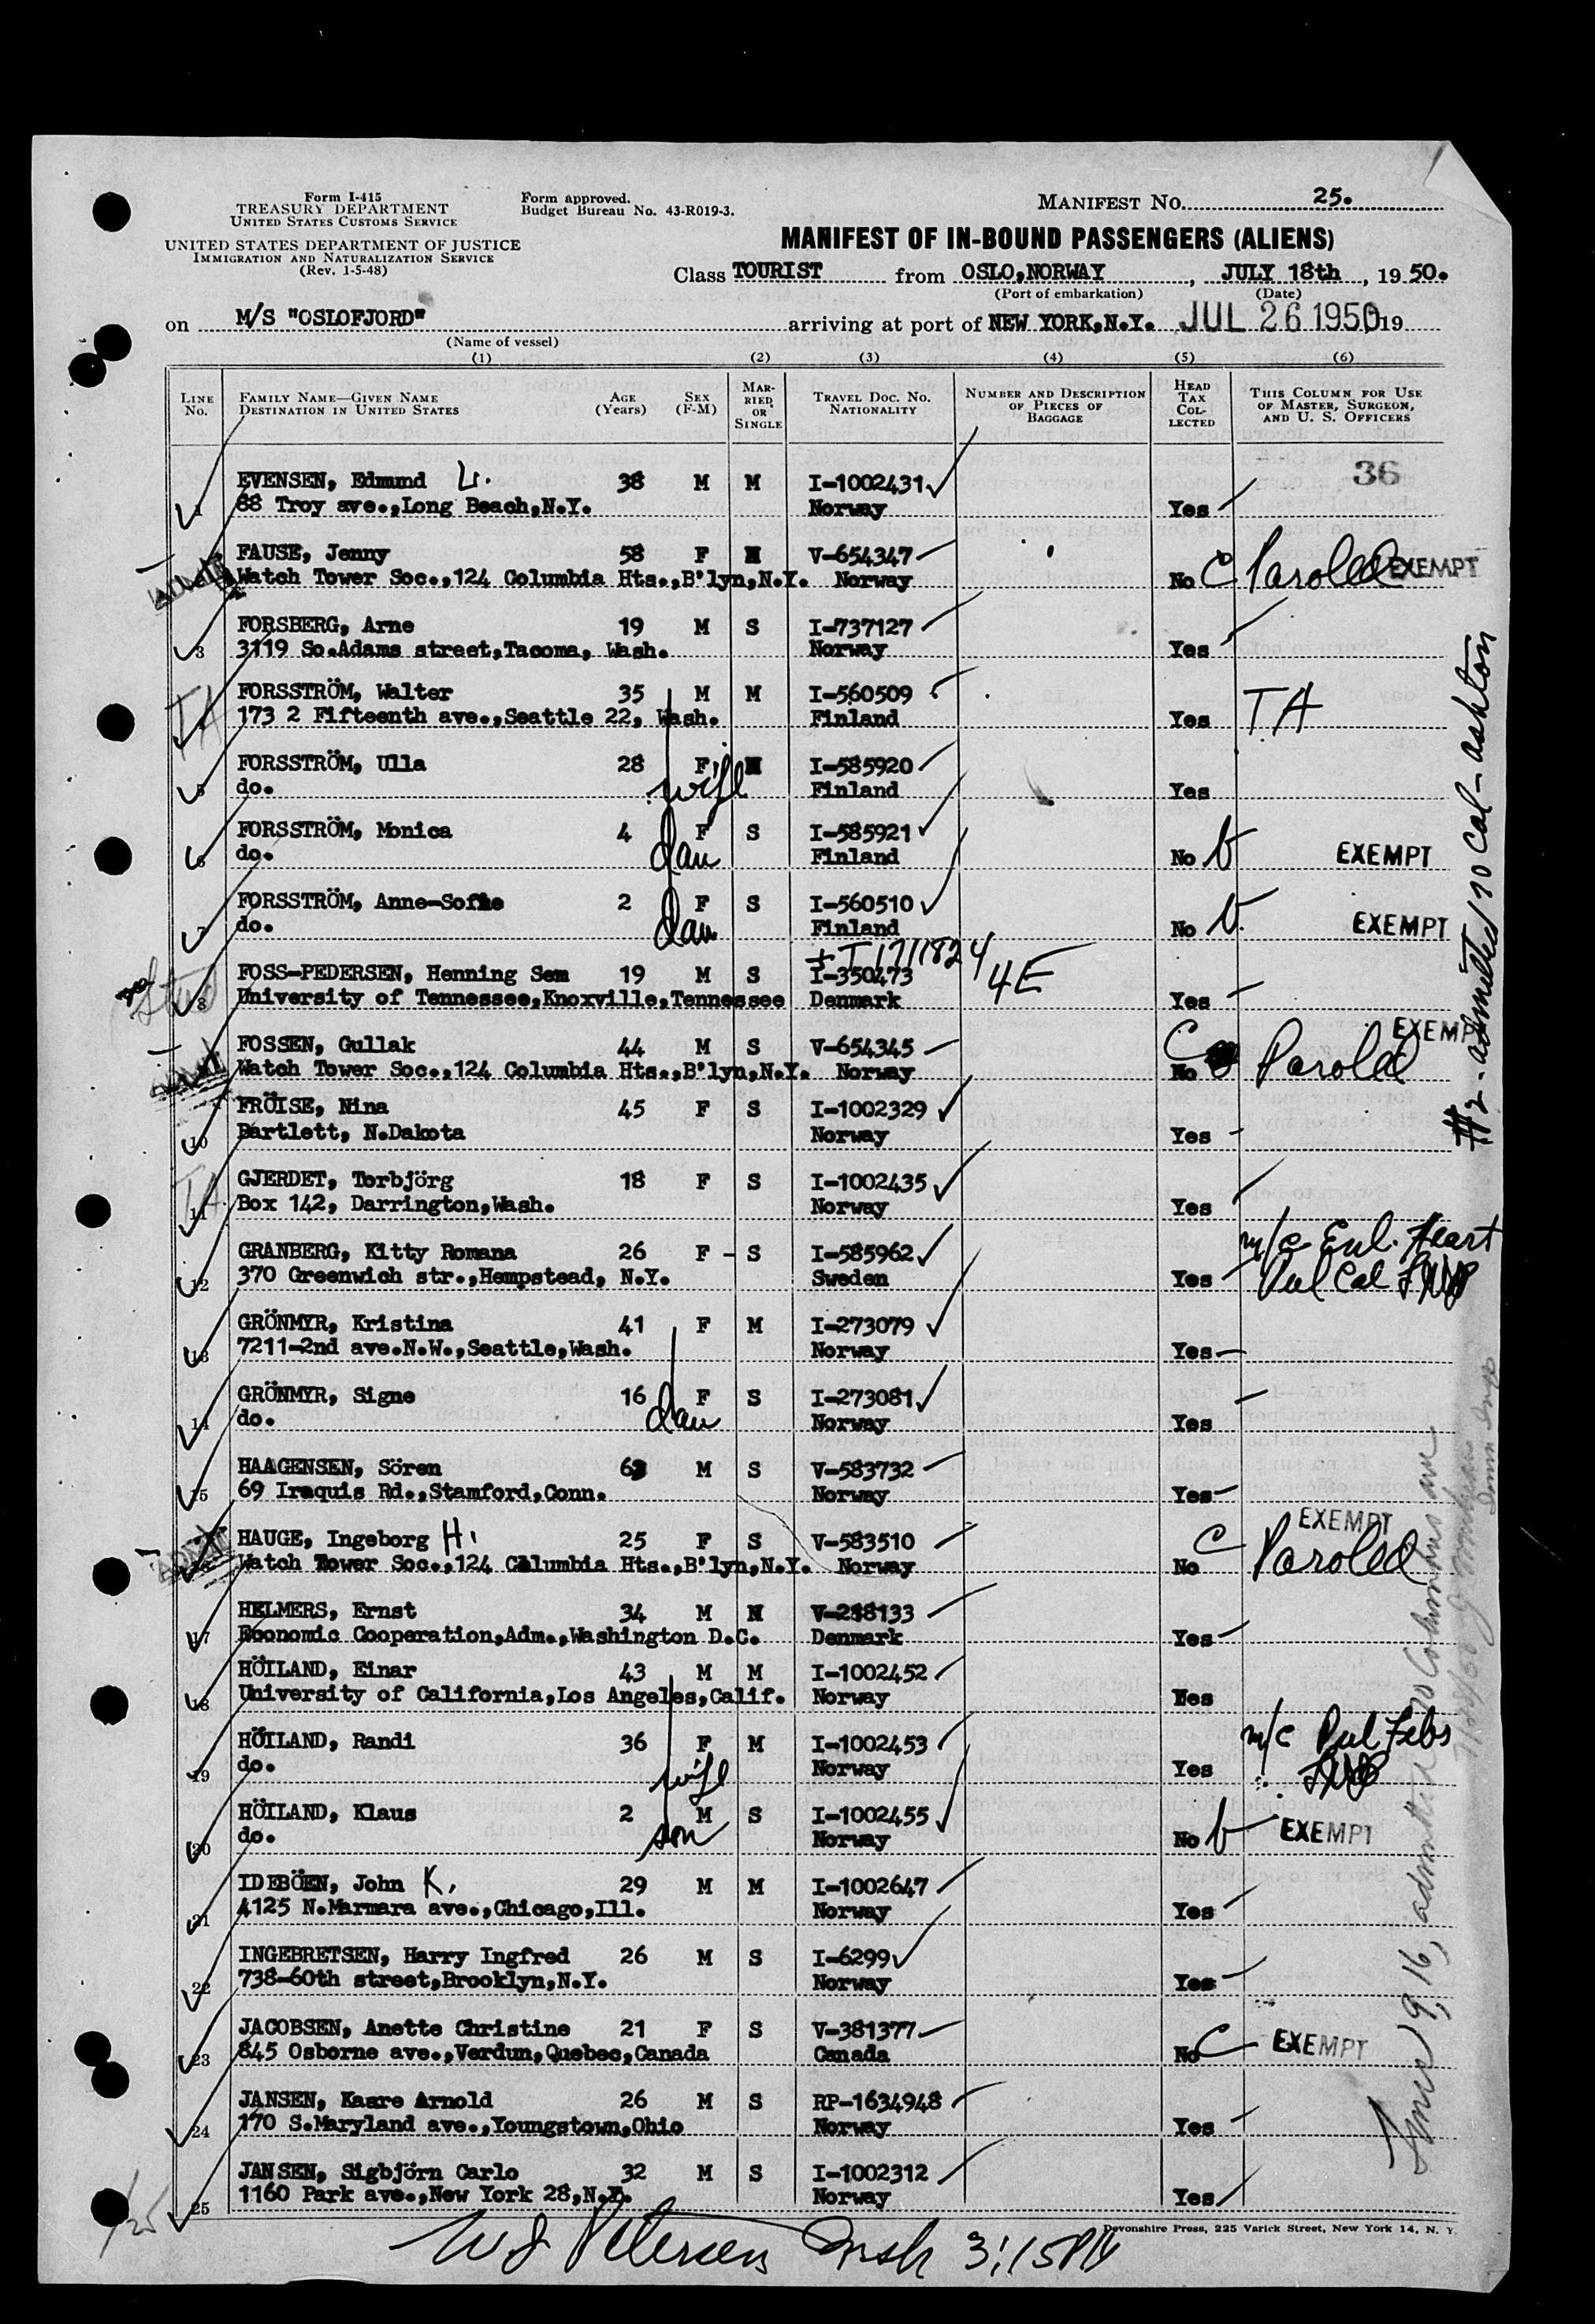 Form I-415
TREASURY DEPARTMENT
UNITED STATES CUSTOMS SERVICE
Form approved.
Budget Bureau No. 43-R019-3.
MANIFEST NO. 25.
UNITED STATES DEPARTMENT OF JUSTICE
IMMIGRATION AND NATURALIZATION SERVICE
(Rev. 1-5-48)
MANIFEST OF IN-BOUND PASSENGERS (ALIENS)
Class TOURIST from OSLO,NORWAY, JULY 18th, 19 50.
(Port of embarkation) (Date)
on M/S "OSLOFJORD" arriving at port of NEW YORK,N.Y. JUL 26 1950 19
(Name of vessel)
(1) (2) (3) (4) (5) (6)
LINE NO. FAMILY NAME—GIVEN NAME DESTINATION IN UNITED STATES AGE (Years) SEX (F-M) MARRIED OR SINGLE TRAVEL DOC. NO. NATIONALITY NUMBER AND DESCRIPTION OF PIECES OF BAGGAGE HEAD TAX COLLECTED THIS COLUMN FOR USE OF MASTER, SURGEON, AND U. S. OFFICERS
36
EVENSEN, Edmund L. 38 M M I-1002431
1 88 Troy ave.,Long Beach,N.Y. Norway Yes
FAUSE, Jenny 58 F V-654347
Watch Tower Soc.,124 Columbia Hts.,B'lyn,N.Y. Norway No C Paroled EXEMPT
FORSBERG, Arne 19 M S I-737127
3 3119 So.Adams street,Tacoma, Wash. Norway Yes
FORSSTRÖM, Walter 35 M M I-560509
TA 173 2 Fifteenth ave.,Seattle 22, Wash. Finland Yes TA
FORSSTRÖM, Ulla 28 F M I-585920
5 do. wife Finland Yes
FORSSTRÖM, Monica 4 F S I-585921
6 do. dau Finland No b EXEMPT
FORSSTRÖM, Anne-Sofie 2 F S I-560510
7 do. dau Finland No b EXEMPT
+ T 1711824
FOSS-PEDERSEN, Henning Sem 19 M S I-350473 4E
8 University of Tennessee,Knoxville,Tennessee Denmark Yes
FOSSEN, Gullak 44 M S V-654345 C EXEMPT
Watch Tower Soc.,124 Columbia Hts.,B'lyn,N.Y. Norway No Paroled
FRÖISE, Nina 45 F S I-1002329
10 Bartlett, N.Dakota Norway Yes
GJERDET, Torbjörg 18 F S I-1002435
TA 11 Box 142, Darrington,Wash. Norway Yes
GRANBERG, Kitty Romana 26 F - S I-585962 m/c Enl. Heart
12 370 Greenwich str.,Hempstead, N.Y. Sweden Yes Pul Cal
GRÖNMYR, Kristina 41 F M I-273079
13 7211-2nd ave.N.W.,Seattle,Wash. Norway Yes
GRÖNMYR, Signe 16 F S I-273081
14 do. dau Norway Yes
HAAGENSEN, Sören M S V-583732
15 69 Iraquis Rd.,Stamford,Conn. Norway Yes
HAUGE, Ingeborg H. 25 F S V-583510 C EXEMPT
Watch Tower Soc.,124 Columbia Hts.,B'lyn,N.Y. Norway No Paroled
HELMERS, Ernst 34 M M V-238133
17 Economic Cooperation,Adm.,Washington D.C. Denmark Yes
HÖILAND, Einar 43 M M I-1002452
18 University of California,Los Angeles,Calif. Norway Yes
HÖILAND, Randi 36 F M I-1002453 m/c Pul Fibs
19 do. wife Norway Yes
HÖILAND, Klaus 2 M S I-1002455
20 do. son Norway No b EXEMPT
IDEBÖEN, John K. 29 M M I-1002647
21 4125 N.Marmara ave.,Chicago,Ill. Norway Yes
INGEBRETSEN, Harry Ingfred 26 M S I-6299
22 738-60th street,Brooklyn,N.Y. Norway Yes
JACOBSEN, Anette Christine 21 F S V-381377
23 845 Osborne ave.,Verdun,Quebec,Canada Canada No C EXEMPT
JANSEN, Kaare Arnold 26 M S RP-1634948
24 170 S.Maryland ave.,Youngstown,Ohio Norway Yes
JANSEN, Sigbjörn Carlo 32 M S I-1002312
25 1160 Park ave.,New York 28,N.Y. Norway Yes
Devonshire Press, 225 Varick Street, New York 14, N. Y.
W J Petersen Insp 3:15PM
#2-admitted 70 Col - Ashton
9, 16, admitted 70 Columbus ave